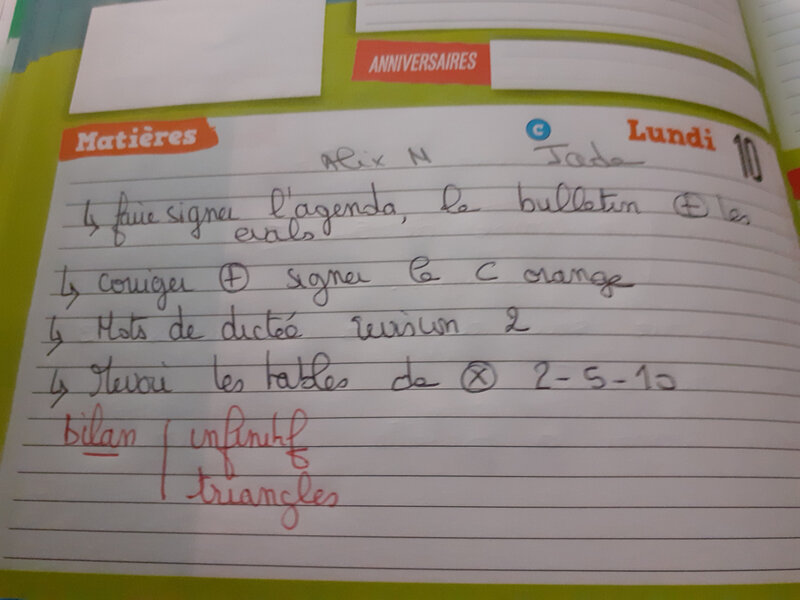 ANNIVERSAIRES
Matières
C
Lundi
10
Alix N
Jade
↳ faire signer l'agenda, le bulletin ⊕ les
evals
↳ corriger ⊕ signer le C orange
↳ Mots de dictée revision 2
↳ Revoir les tables de ⊗ 2-5-10
bilan | infinitif
triangles